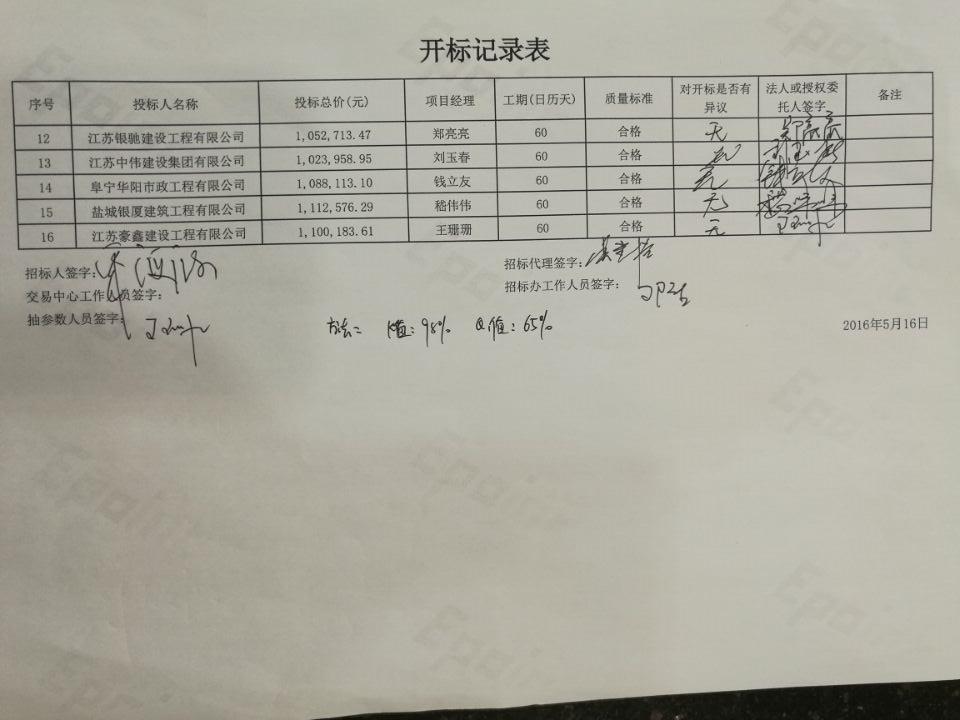 开标记录表
序号 投标人名称 投标总价(元) 项目经理 工期(日历天) 质量标准 对开标是否有异议 法人或授权委托人签字 备注
12 江苏银驰建设工程有限公司 1,052,713.47 郑亮亮 60 合格 无
13 江苏中伟建设集团有限公司 1,023,958.95 刘玉春 60 合格 无
14 阜宁华阳市政工程有限公司 1,088,113.10 钱立友 60 合格 无 钱立友
15 盐城银厦建筑工程有限公司 1,112,576.29 嵇伟伟 60 合格 无
16 江苏豪鑫建设工程有限公司 1,100,183.61 王珊珊 60 合格 无
招标人签字: 招标代理签字:
交易中心工作人员签字: 招标办工作人员签字:
抽参数人员签字: 方法二 K值:98% Q值:65% 2016年5月16日
Epoint
Epoint
Epoint
Epoint
Epoint